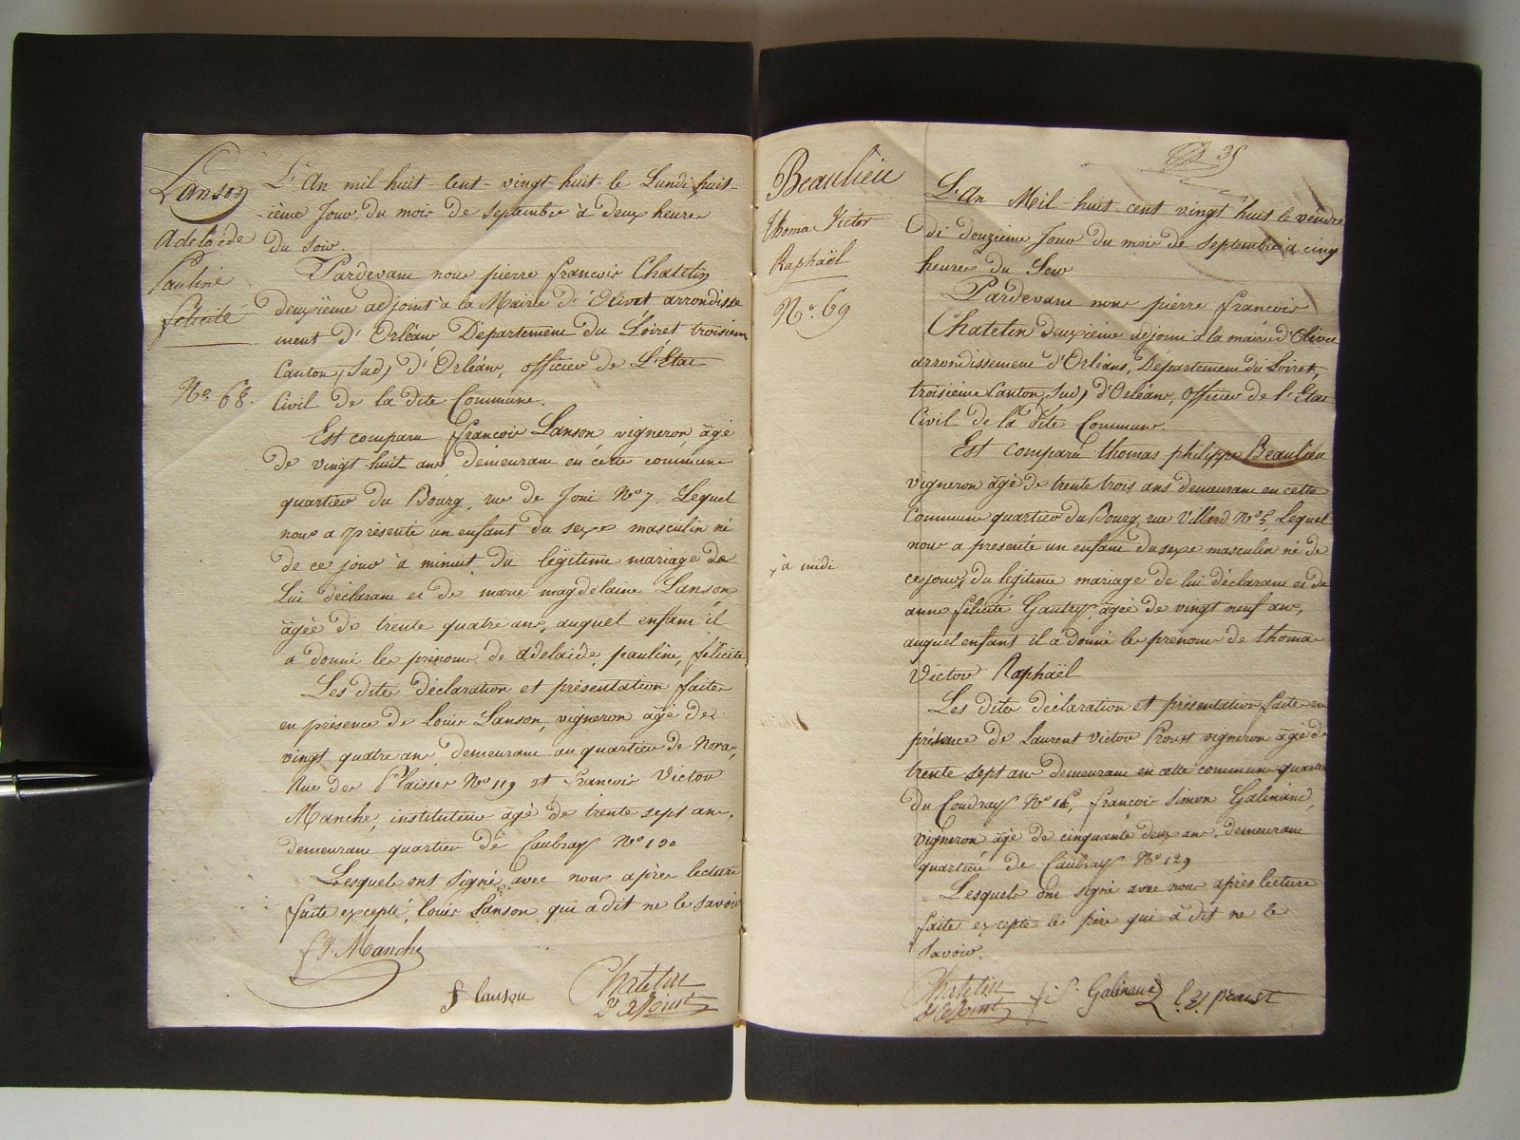 Lanson
Adelaïde
Pauline
félicité
No. 68.
L'An mil huit cent vingt huit le Lundi huit-
ième Jour du mois de Septembre à deux heures
du soir.
Pardevant nous pierre françois Chatelin
deuxième adjoint à la Mairie d'Olivet arrondisse
ment d'Orléans Département du Loiret troisieme
Canton, Sud, d'Orléans, officier de L'Etat
Civil de la dite Commune.
Est comparu françois Lanson vigneron âgé
de vingt huit ans demeurant en cette commune
quartier du Bourg, rue de Joui No 7. Lequel
nous a présenté un enfant du sexe masculin né
de ce jour à minuit du légitime mariage de
Lui déclarant et de marie magdelaine Lanson
âgée de trente quatre ans, auquel enfant il
a donné les prénoms de adelaide, pauline, félicité
Les dites déclaration et présentation faites
en présence de Louis Lanson, vigneron âgé de
vingt quatre ans demeurant au quartier de Nora,
Rue des Plaisses No 119 et françois Victor
Manche, instituteur âgé de trente sept ans,
demeurant quartier de Caubray No 100
Lesquels ont Signé avec nous après lecture
faite excepté Louis Lanson qui a dit ne le savoir
f V. Manche
f lanson
Chatelin
Dr adjoint
35
Beaulieu
thomas Victor
Raphaël
No. 69
à midi
L'An Mil huit cent vingt huit le vendre
di douzième Jour du mois de Septembre à cinq
heures du Soir
Pardevant nous pierre françois
Chatelin deuxième adjoint à la mairie d'Olivet
arrondissement d'Orléans, Département du Loiret,
troisième Canton, Sud, d'Orléans, officier de l'Etat
Civil de la dite Commune.
Est comparu thomas philippe Beaulieu
vigneron âgé de trente trois ans demeurant en cette
Commune quartier du Bourg, rue Villard No 5 Lequel
nous a presenté un enfant du sexe masculin né de
ce jour, du légitime mariage de lui déclarant et de
anne félicité Gautry âgée de vingt neuf ans,
auquel enfant il a donné les prénoms de thomas
Victor Raphaël
Les dites déclaration et présentation faites en
présence de Laurent Victor Proust vigneron âgé de
trente sept ans demeurant en cette commune quartier
du Coudray No 16, françois Simon Galinand,
vigneron âgé de cinquante deux ans, demeurant
quartier de Caubray No 129
Lesquels ont signé avec nous après lecture
faite excepté le père qui a dit ne le
savoir.
Chatelin
Dr adjoint
f. S. Galinand
l. v. proust